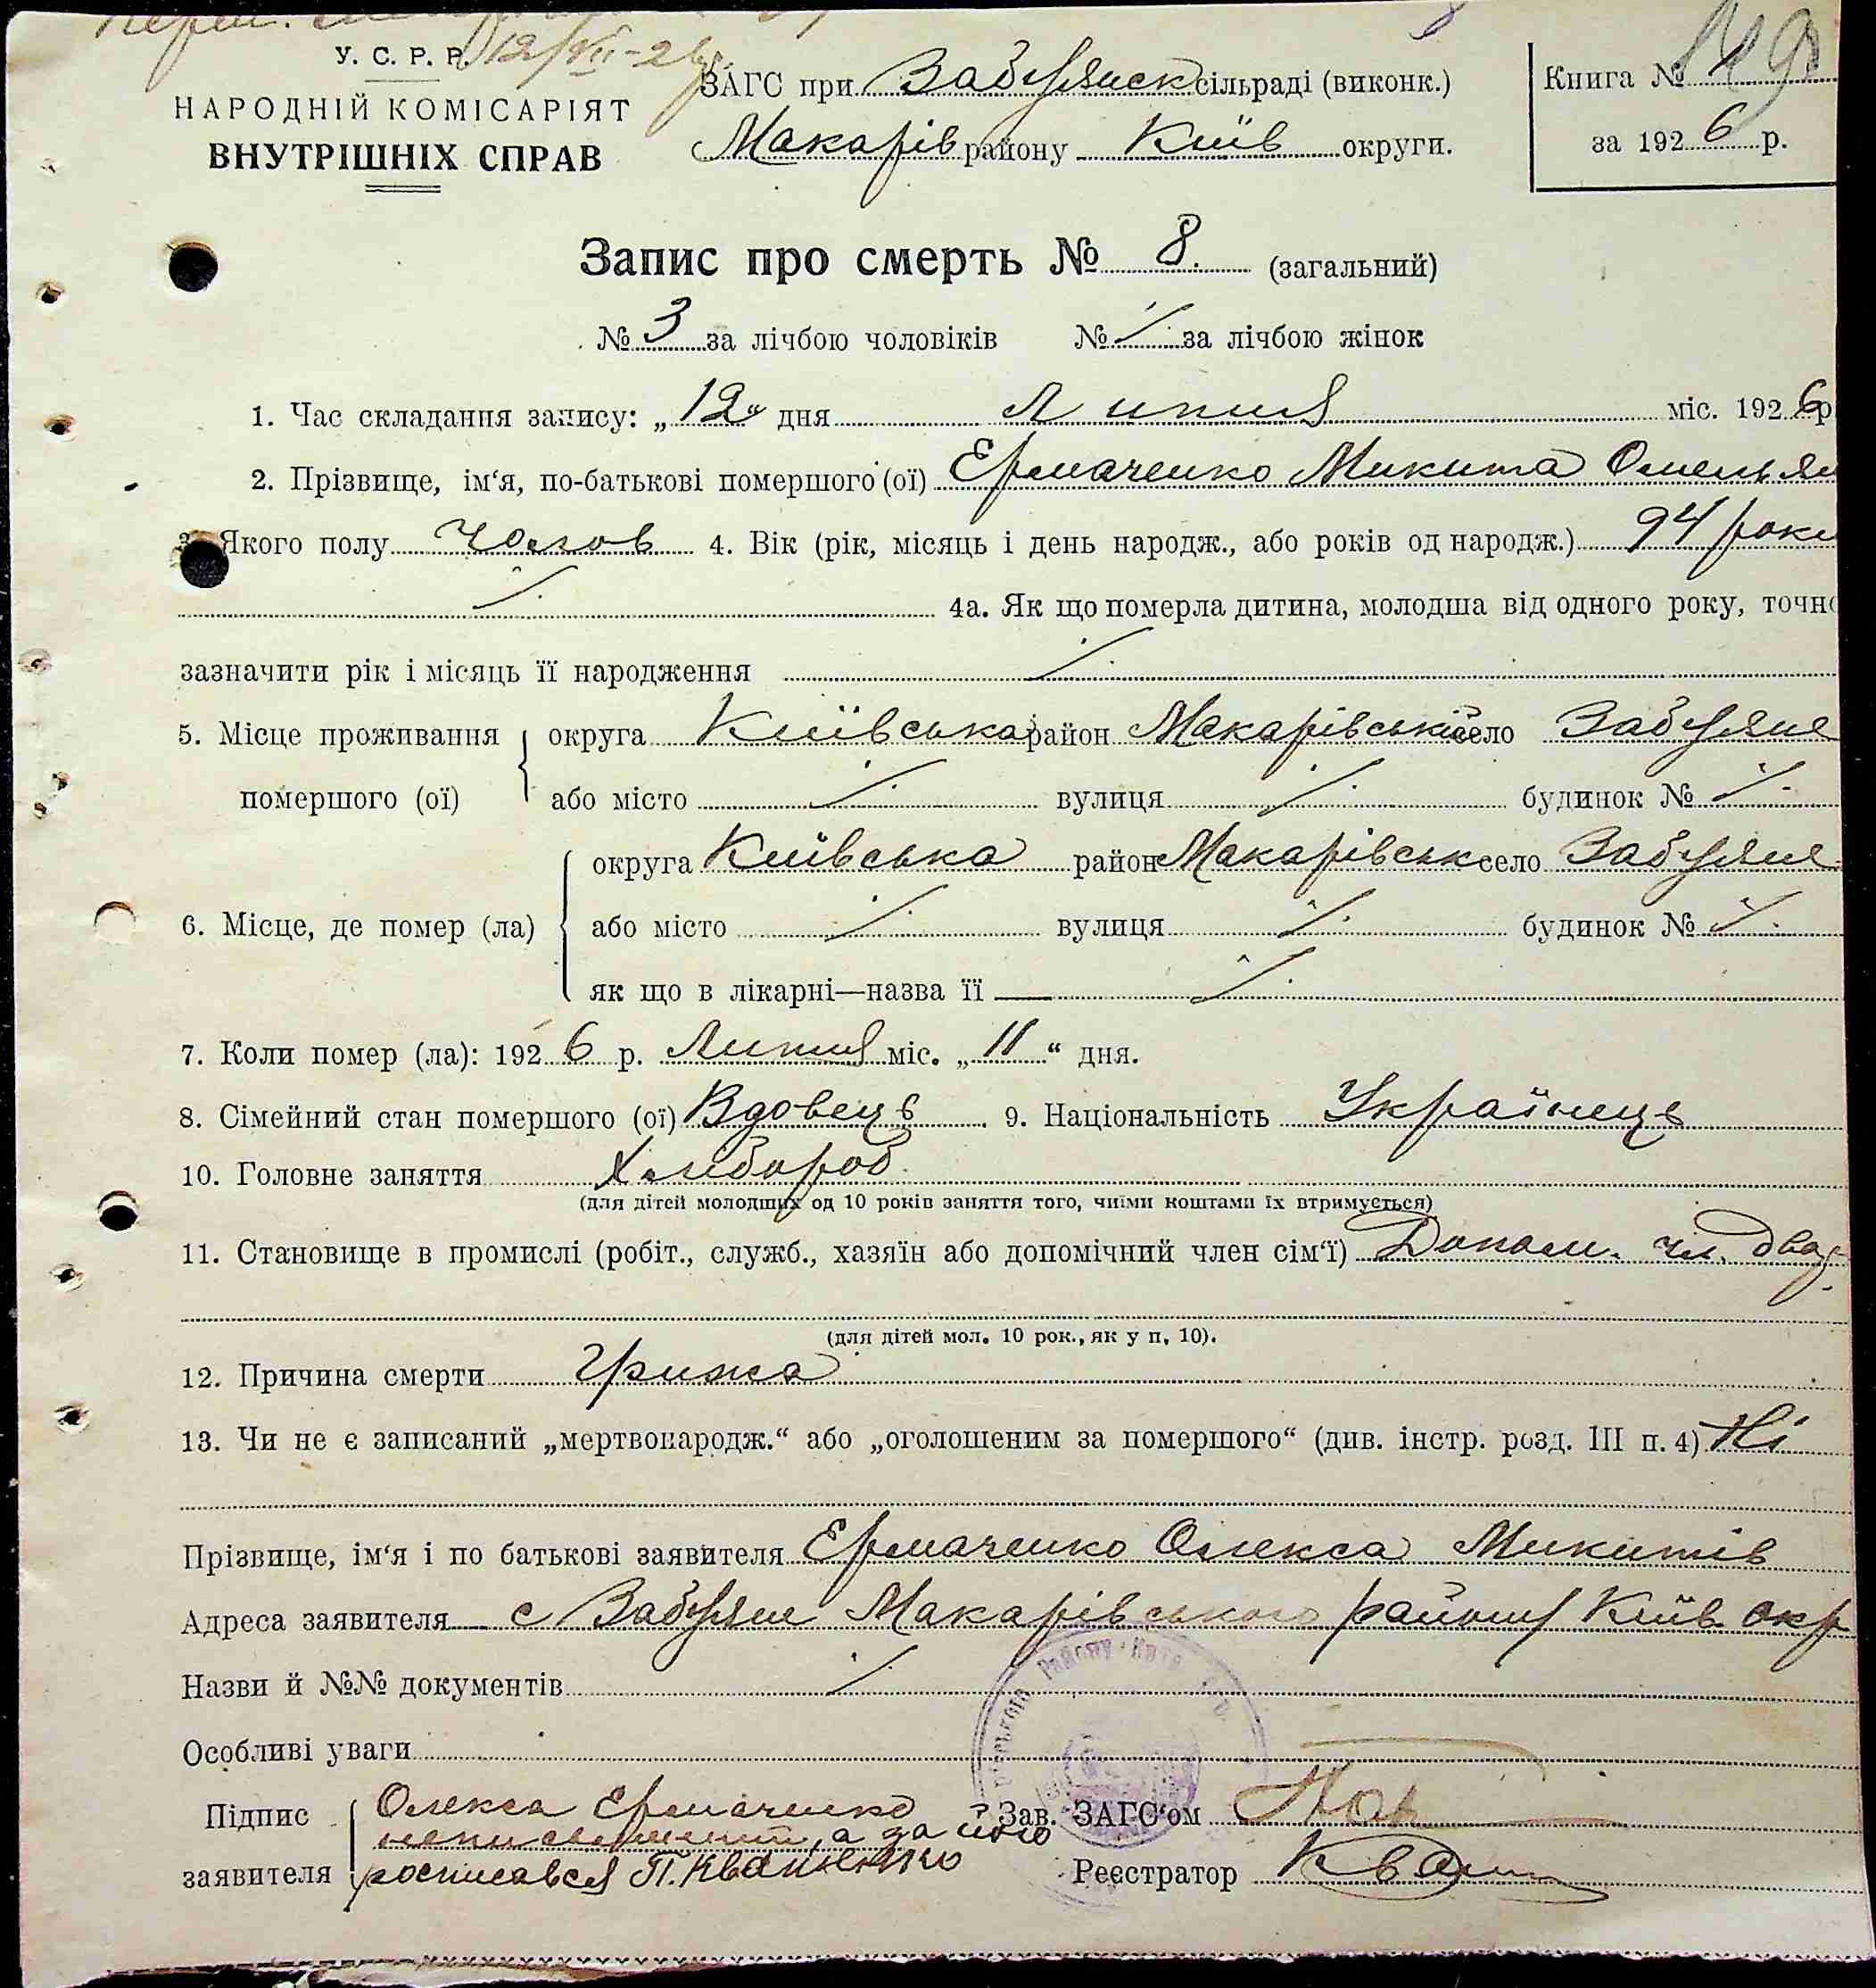 У. С. Р. Р. 12/VII-26 р.
НАРОДНІЙ КОМІСАРІЯТ
ВНУТРІШНІХ СПРАВ
ЗАГС при Забуянск сільраді (виконк.)
Макарів району Київ округи.
Книга №
за 1926 р.
Запис про смерть № 8. (загальний)
№ 3 за лічбою чоловіків № /. за лічбою жінок
1. Час складання запису: „12“ дня Липня міс. 1926 р
2. Прізвище, ім‘я, по-батькові помершого (ої) Ермаченко Микита Омелья
3. Якого полу чолов 4. Вік (рік, місяць і день народж., або років од народж.) 94 роки
/. 4а. Як що померла дитина, молодша від одного року, точно
зазначити рік і місяць її народження /.
5. Місце проживання помершого (ої) округа Київська район Макарівськ село Забуяня
або місто /. вулиця /. будинок № /.
6. Місце, де помер (ла) округа Київська район Макарівськ село Забуяня
або місто /. вулиця /. будинок № /.
як що в лікарні—назва її /.
7. Коли помер (ла): 1926 р. Липня міс. „11“ дня.
8. Сімейний стан помершого (ої) Вдовець. 9. Національність Українець
10. Головне заняття Хлибороб
(для дітей молодших од 10 років заняття того, чиїми коштами їх втримується)
11. Становище в промислі (робіт., служб., хазяїн або допомічний член сім‘ї) Допом. чл. двор.
(для дітей мол. 10 рок., як у п. 10).
12. Причина смерти Грижа
13. Чи не є записаний „мертвонародж.“ або „оголошеним за помершого“ (див. інстр. розд. III п. 4) Ні
Прізвище, ім‘я і по батькові заявителя Ермаченко Олекса Микитів
Адреса заявителя с Забуяня Макарівського району Київ. окр
Назви й №№ документів /.
Особливі уваги
Підпис заявителя Олекса Ермаченко
неписьменний, а за його
росписався П. Кваш
Зав. ЗАГС‘ом
Реєстратор Кваш